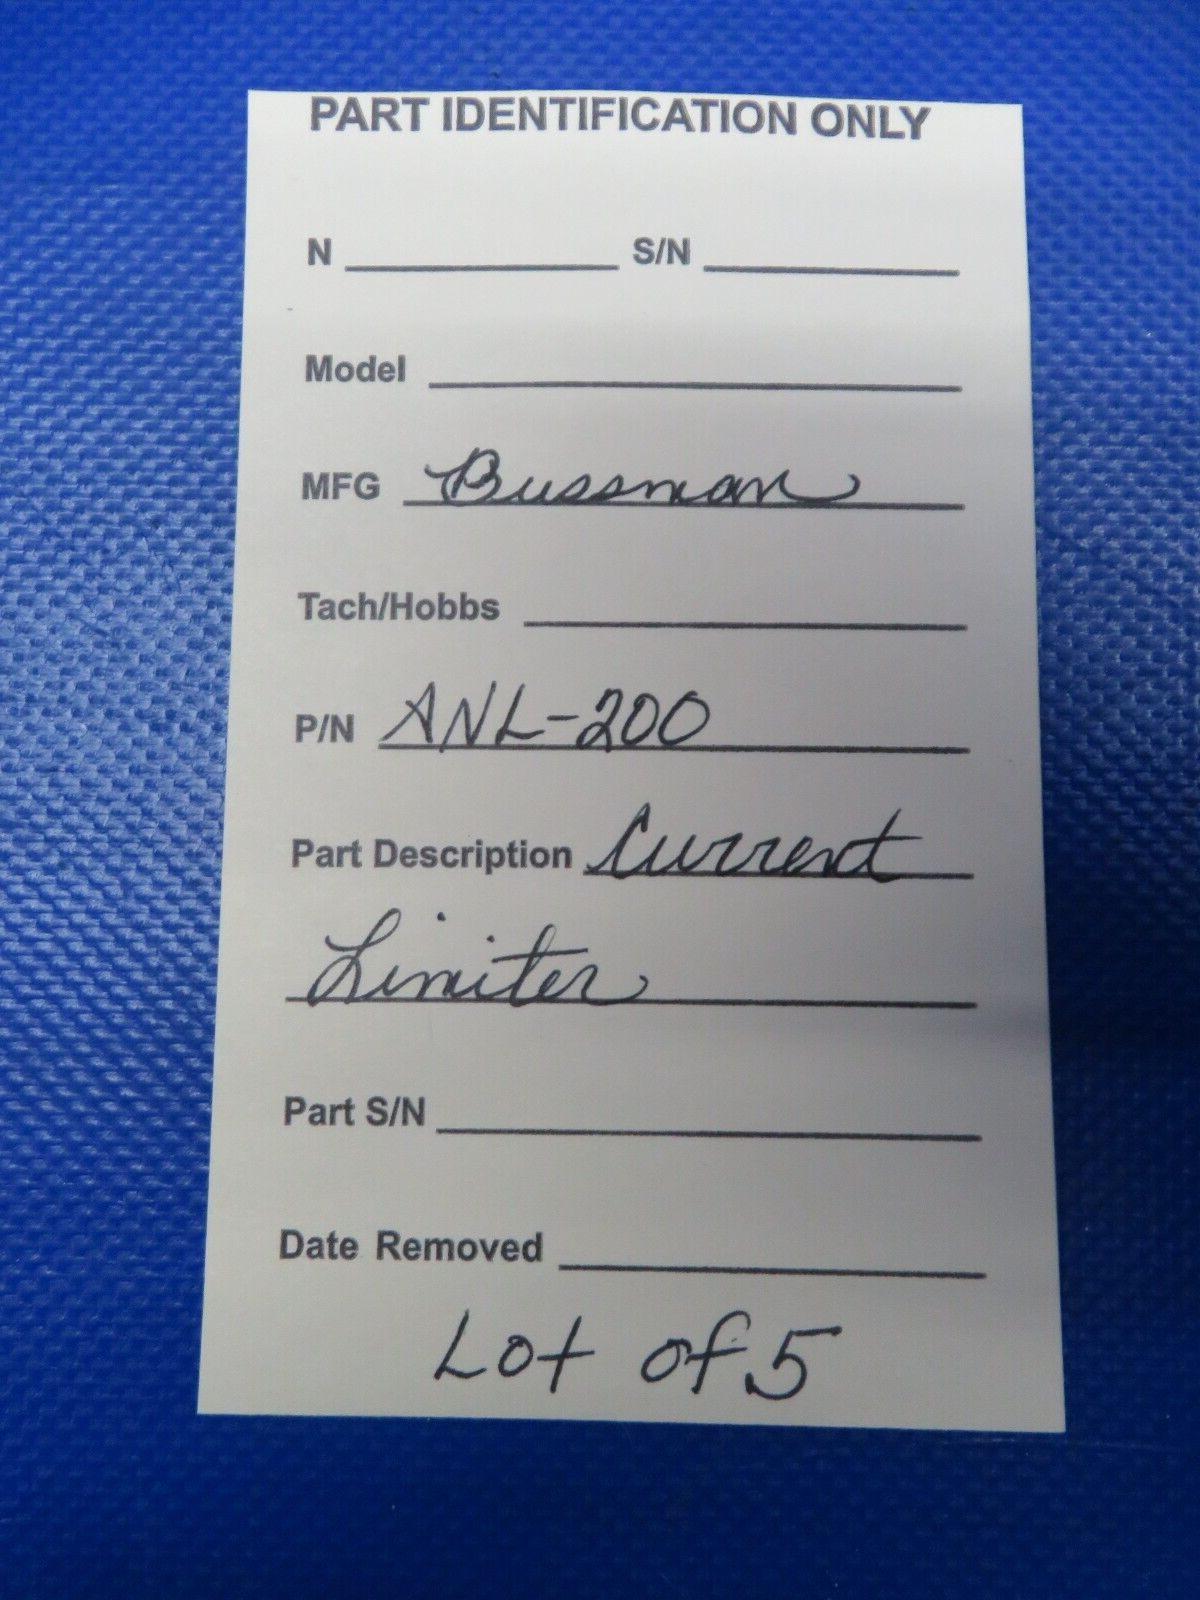 PART IDENTIFICATION ONLY
N S/N
Model
MFG Bussman
Tach/Hobbs
P/N ANL-200
Part Description Current
Limiter
Part S/N
Date Removed
Lot of 5